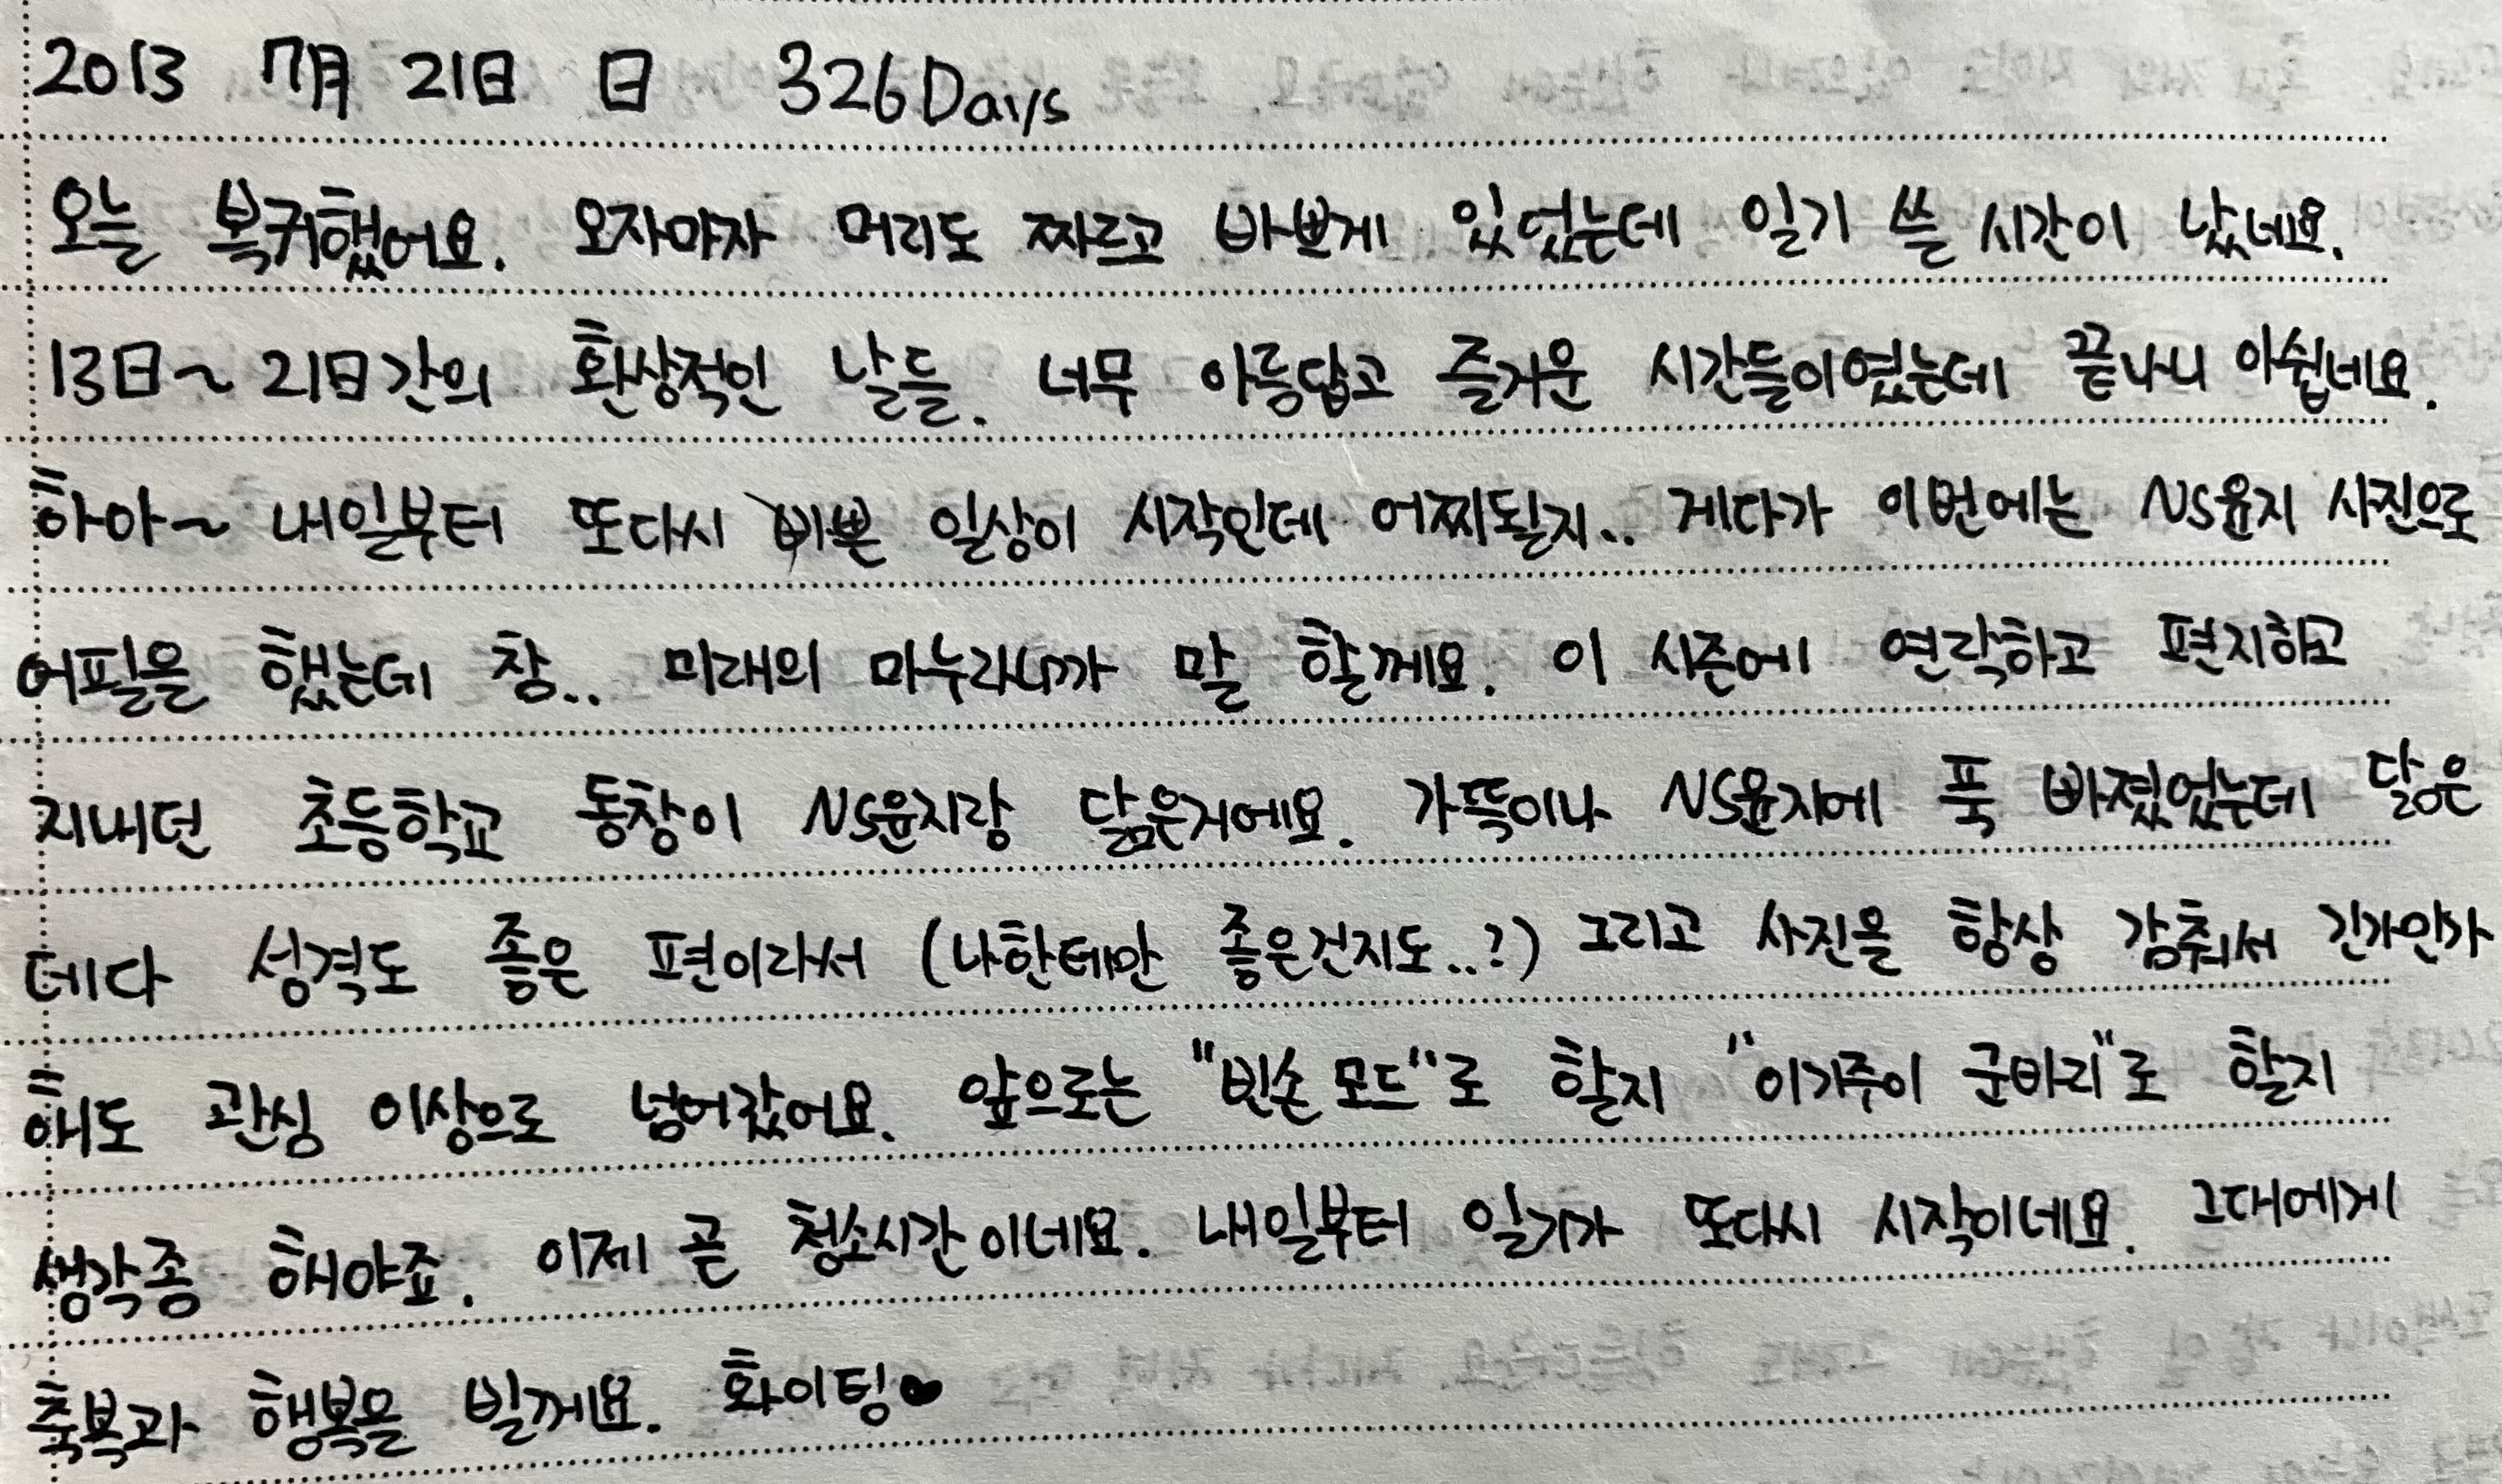 2013 7月 21日 日 326Days
오늘 복귀했어요. 오자마자 머리도 짜르고 바쁘게 있었는데 일기 쓸 시간이 났네요.
13日~21日간의 환상적인 날들. 너무 아릉답고 즐거운 시간들이였는데 끝나니 아쉽네요.
하아~ 내일부터 또다시 바쁜 일상이 시작인데 어찌될지.. 게다가 이번에는 NS윤지 사진으로
어필을 했는데 참.. 미래의 마누라니까 말 할께요. 이 시즌에 연락하고 편지하고
지내던 초등학교 동창이 NS윤지랑 닮은거에요. 가뜩이나 NS윤지에 푹 빠졌었는데 닮은
데다 성격도 좋은 편이라서 (나한테만 좋은건지도..?) 그리고 사진을 항상 감춰서 긴가민가
해도 관심 이상으로 넘어갔어요. 앞으로는 "빈손 모드"로 할지 "이기주이 군바리"로 할지
생각좀 해야죠. 이제 곧 청소시간이네요. 내일부터 일기가 또다시 시작이네요. 그대에게
축복과 행복을 빌께요. 화이팅♥